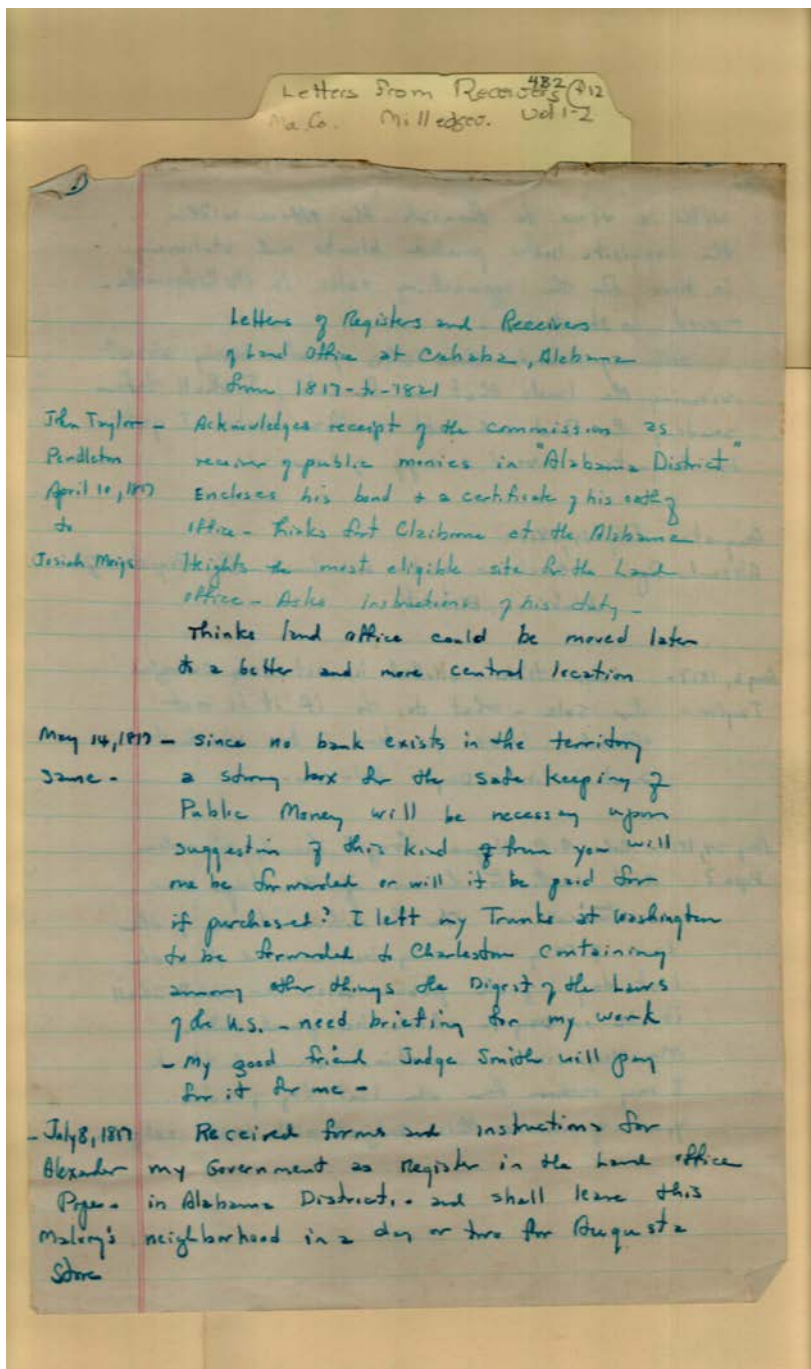 Letters From Receivers 482
Ma. Co. Milledgev. Vol 1-2
Letters of Registers and Receivers
of Land Office at Cahaba, Alabama
from 1817-to-1821
John Taylor - Acknowledges receipt of the commission as
Pendleton receiver of public monies in "Alabama District"
April 10, 1817 Encloses his bond & a certificate of his oath of
to office - Thinks fort Claiborne at the Alabama
Josiah Meigs Heights the most eligible site for the Land
office - Asks instructions of his duty -
Thinks land office could be moved later
to a better and more central location
May 14, 1817 - Since no bank exists in the territory
Same - a strong box for the safe keeping of
Public Money will be necessary upon
suggestion of this kind of from you will
one be forwarded or will it be paid for
if purchased? I left my Trunks at Washington
to be forwarded to Charleston containing
among other things the Digest of the Laws
of the U.S. - need briefing for my work
- My good friend Judge Smith will pay
for it for me -
- July 8, 1817 Received forms and instructions for
Alexander my Government as Register in the Land office
Pope - in Alabama District. - and shall leave this
Malory's neighborhood in a day or two for Augusta
Store